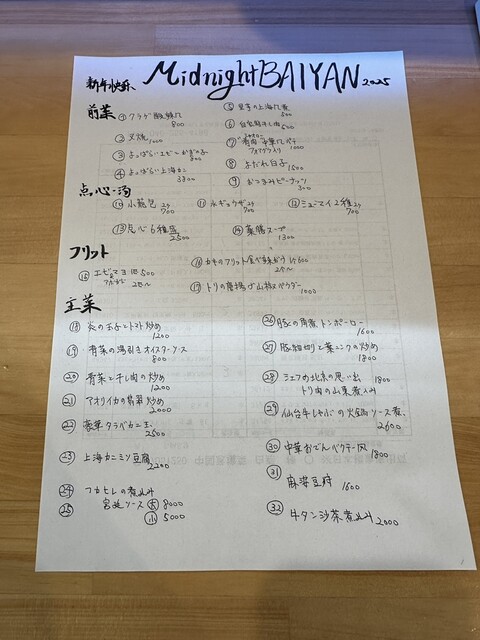 新年快楽 Midnight BAIYAN 2025
前菜
① クラゲ
800
② 叉焼 1000
③ よっぱらいエビ
800
④ よっぱらい上海カニ
3800
⑤ 豆苗の上海
800
⑥ 台湾
600
⑦
フォアグラ入り 1000
⑧ よだれ白子
1600
⑨ おつまみピーナッツ
300
点心・湯
⑩ 小籠包 2ケ
700
⑪ 水ギョウザ 2ケ
700
⑫ シューマイ2種 2ケ
700
⑬ 点心6種盛
2500
⑭ 薬膳スープ
1300
フリット
⑮ エビマヨ 1ケ 500
アボカド 2ケ〜
⑯ カキのフリット 1ケ 600
2ケ〜
⑰ トリの唐揚げ山椒パウダー
1000
主菜
⑱ 炎の玉子とトマト炒め
1200
⑲ 青菜の湯引きオイスターソース
800
⑳ 青菜と干し肉の炒め
1200
㉑ アオリイカの翡翠炒め
2000
㉒ 豪華タラバカニ玉
2500
㉓ 上海カニミソ豆腐
2200
㉔ フカヒレの煮込み
㉕ 宮廷ソース 大 8000
小 5000
㉖ 豚の角煮トンポーロー
1600
㉗ 豚細切りと葉ニンニクの炒め
1800
㉘ シェフの北京の思い出 1800
トリ肉の山東煮込み
㉙ 仙台牛しゃぶの火鍋ソース煮
2600
㉚ 中華おでんベクテー風
1800
㉛ 麻婆豆腐
1600
㉜ 牛タン沙茶煮込み 2000